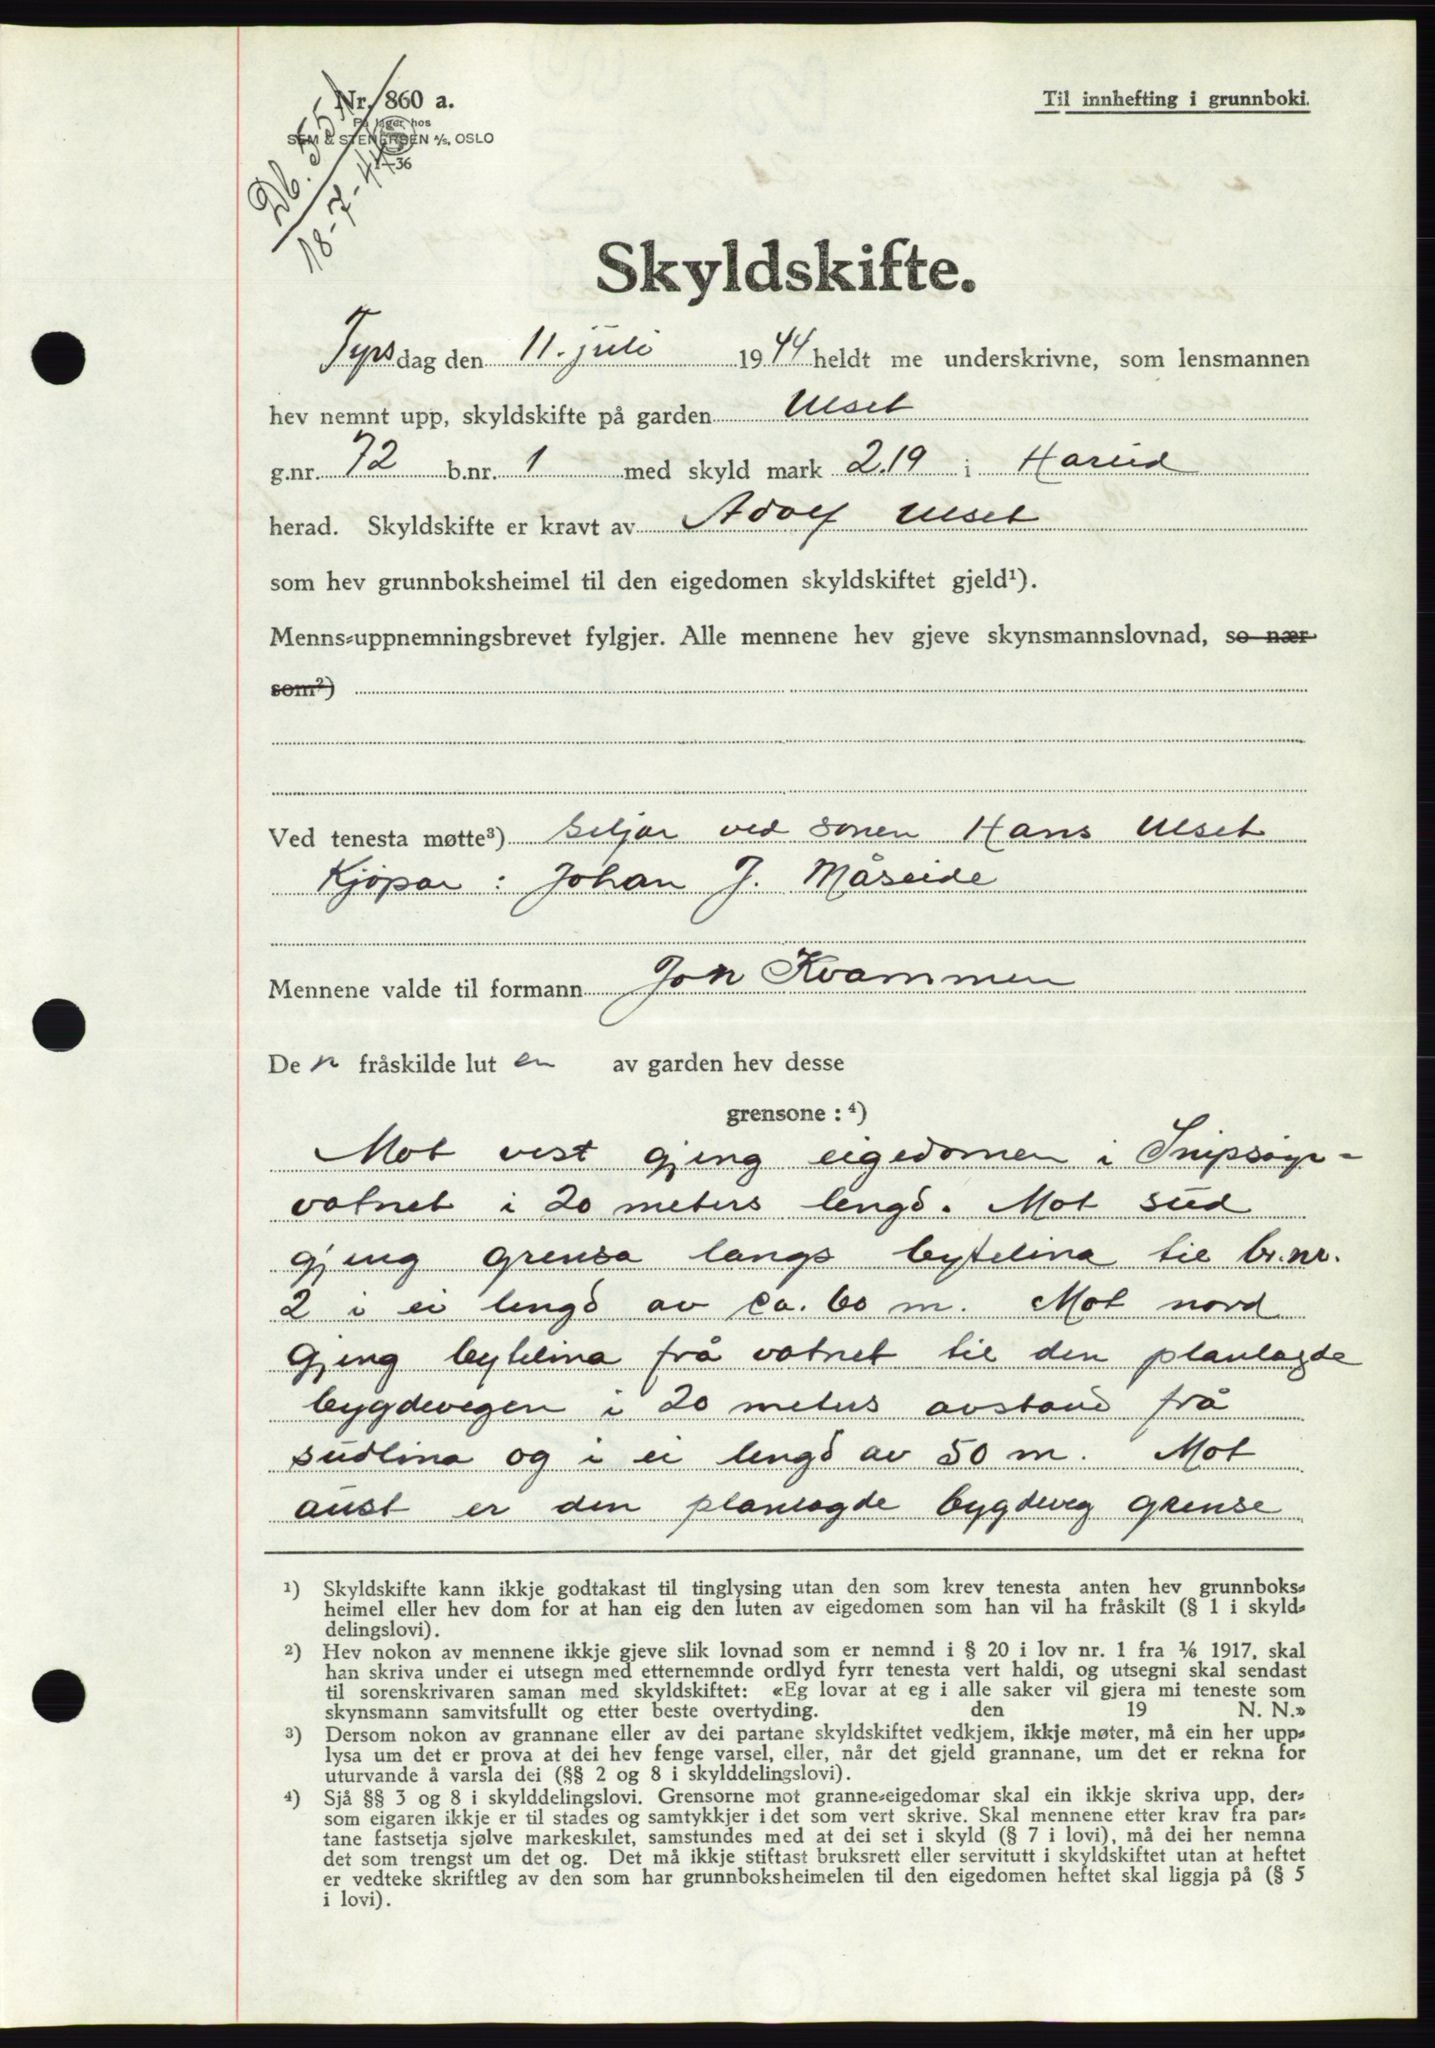 Nr. 860 a.
På lager hos
SEM & STENERSEN A/S, OSLO
1—36
Db. 551
18-7-44
Til innhefting i grunnboki.
Skyldskifte.
Tyrsdag den 11. juli 1944 heldt me underskrivne, som lensmannen
hev nemnt upp, skyldskifte på garden Ulset
g.nr. 72 b.nr. 1 med skyld mark 2.19 i Hareid
herad. Skyldskifte er kravt av Adolf Ulset
som hev grunnboksheimel til den eigedomen skyldskiftet gjeld¹).
Menns=uppnemningsbrevet fylgjer. Alle mennene hev gjeve skynsmannslovnad, so nær
som²)
Ved tenesta møtte³) Seljar ved sonen Hans Ulset
Kjøpar : Johan J. Måseide
Mennene valde til formann Jon Kvammen
De n fråskilde lut en av garden hev desse
grensone : ⁴)
Mot vest gjeng eigedomen i Snipsøyr-
vatnet i 20 meters lengd. Mot sud
gjeng grensa langs bytelina til br.nr.
2 i ei lengd av ca. 60 m. Mot nord
gjeng bytelina frå vatnet til den planlagde
bygdevegen i 20 meters avstand frå
sudlina og i ei lengd av 50 m. Mot
aust er den planlagde bygdeveg grense
¹) Skyldskifte kann ikkje godtakast til tinglysing utan den som krev tenesta anten hev grunnboks=
heimel eller hev dom for at han eig den luten av eigedomen som han vil ha fråskilt (§ 1 i skyld=
delingslovi).
²) Hev nokon av mennene ikkje gjeve slik lovnad som er nemnd i § 20 i lov nr. 1 fra ⅙ 1917, skal
han skriva under ei utsegn med etternemnde ordlyd fyrr tenesta vert haldi, og utsegni skal sendast
til sorenskrivaren saman med skyldskiftet: «Eg lovar at eg i alle saker vil gjera mi teneste som
skynsmann samvitsfullt og etter beste overtyding. den 19 N. N.»
³) Dersom nokon av grannane eller av dei partane skyldskiftet vedkjem, ikkje møter, må ein her upp=
lysa um det er prova at dei hev fenge varsel, eller, når det gjeld grannane, um det er rekna for
uturvande å varsla dei (§§ 2 og 8 i skylddelingslovi).
⁴) Sjå §§ 3 og 8 i skylddelingslovi. Grensorne mot granne=eigedomar skal ein ikkje skriva upp, der=
som eigaren ikkje er til stades og samtykkjer i det som vert skrive. Skal mennene etter krav fra par=
tane fastsetja sjølve markeskilet, samstundes med at dei set i skyld (§ 7 i lovi), må dei her nemna
det som trengst um det og. Det må ikkje stiftast bruksrett eller servitutt i skyldskiftet utan at heftet
er vedteke skriftleg av den som har grunnboksheimelen til den eigedomen heftet skal liggja på (§ 5
i lovi).